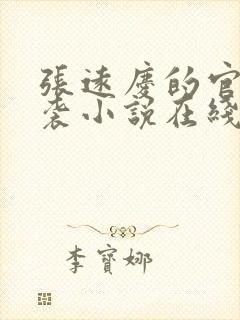 張遠慶的官
袭小說在綫
李寶娜